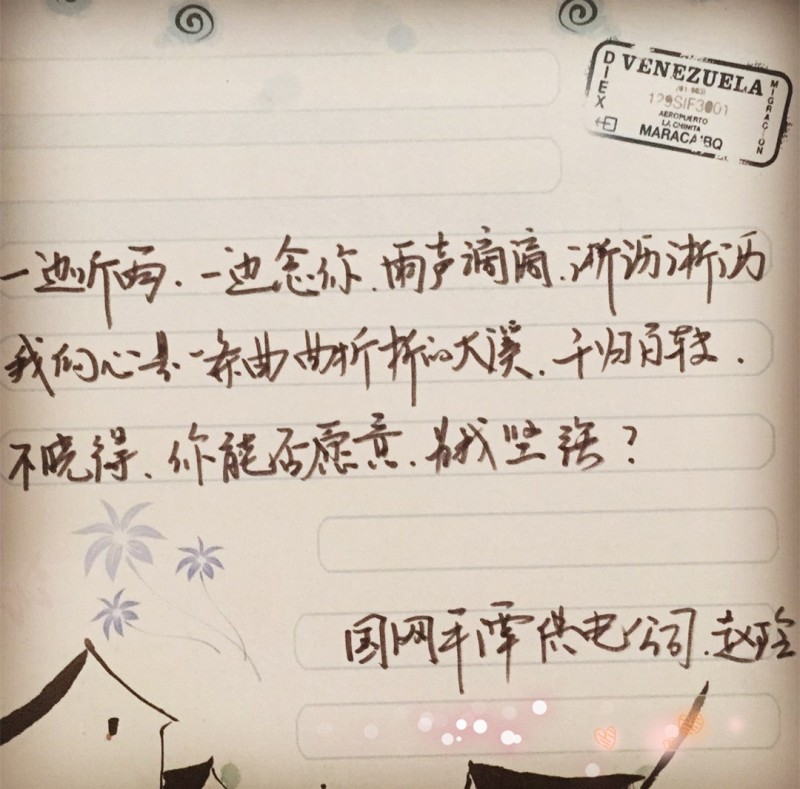 DIEX
VENEZUELA
MIGRACION
129SIF3001
AEROPUERTO
LA CHINITA
一边听雨.一边念你.雨声滴滴.淅沥淅沥
我的心是一条曲曲折折的大溪.千归百转.
不晓得.你能否愿意.为我坚强?
国网平潭供电公司.赵